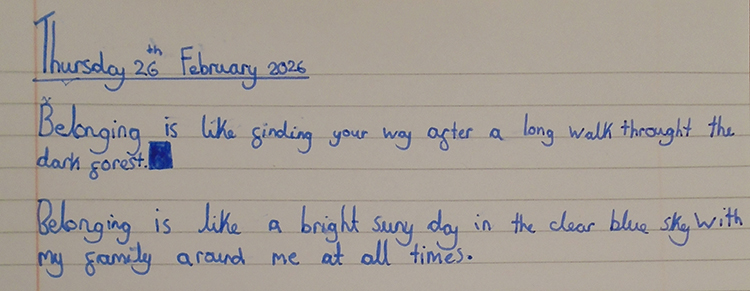 Thursday 26th February 2026
Belonging is like finding your way after a long walk throught the
dark forest.
Belonging is like a bright suny day in the clear blue sky with
my family around me at all times.